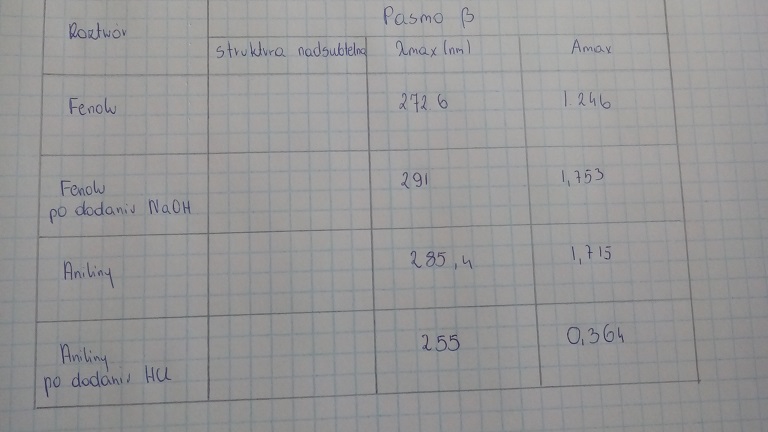 Roztwór
Pasmo β
struktura nadsubtelna
λmax (nm)
Amax
Fenolu
272 6
1.246
Fenolu
po dodaniu NaOH
291
1,753
Aniliny
285,4
1,715
Aniliny
po dodaniu HCl
255
0,364